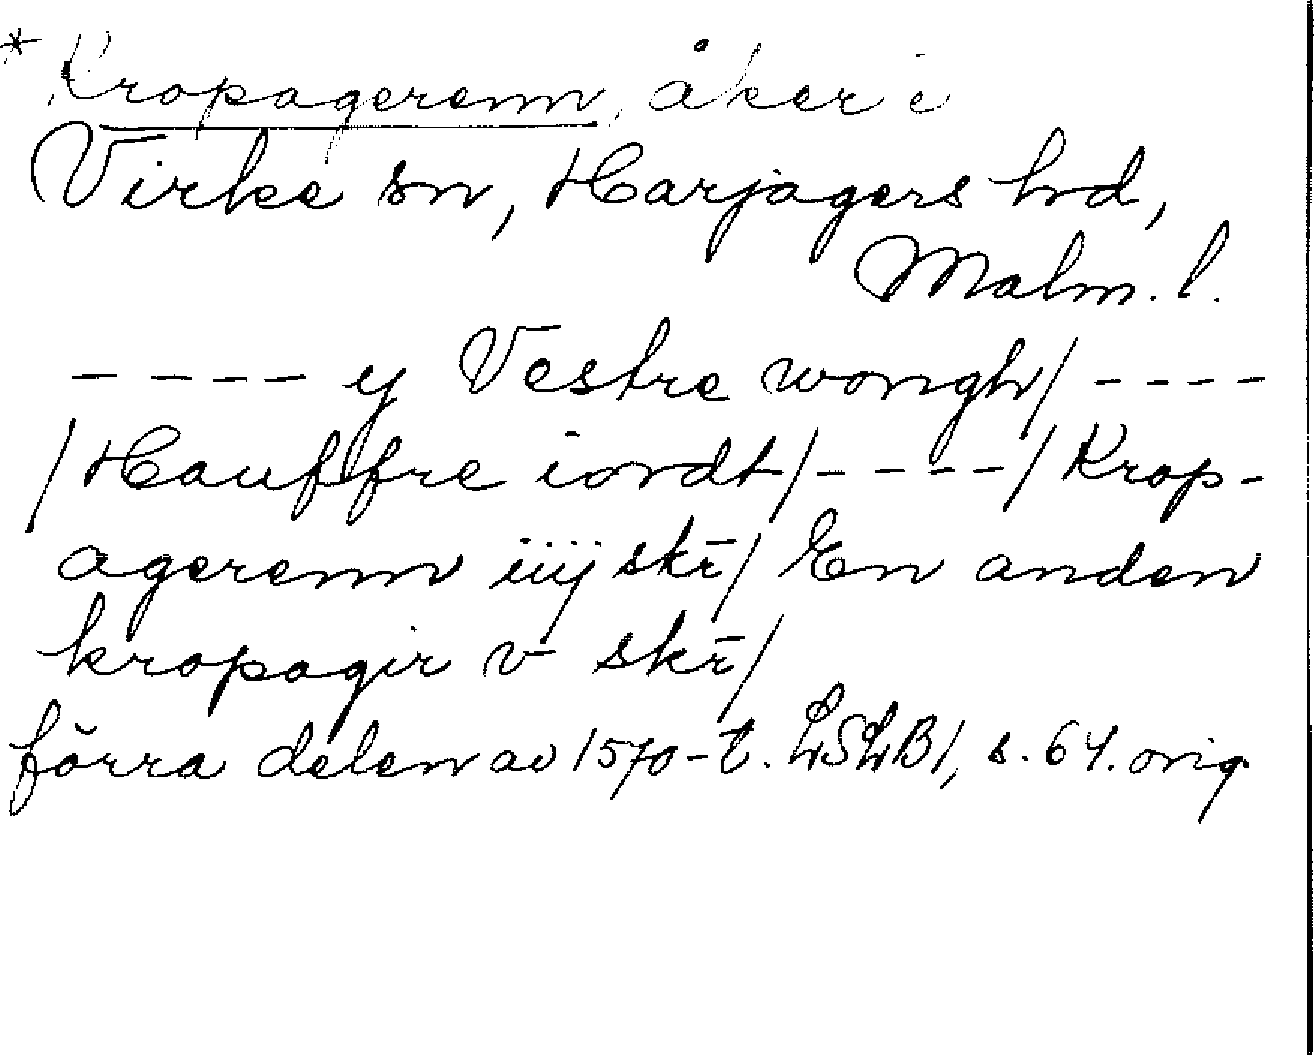 *Kropagerenn, åker i
Virke sn, Harjagers hd,
Malm. l.
---- y Vestre wongh/ ----
/Hauffre iordt/----/Krop-
agerenn iiij skr̄/ En anden
kropagir v skr̄/
förra delen av 1570-t. LSLB1, s. 64. orig.